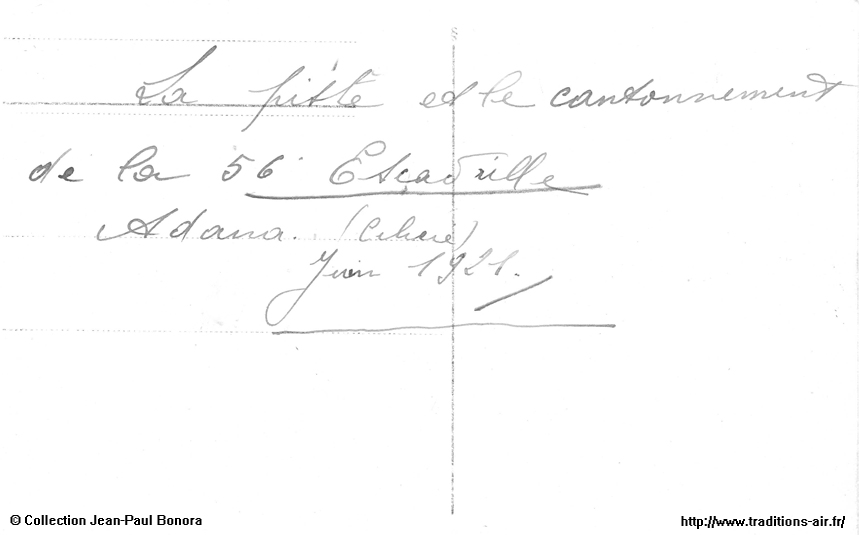 La piste et le cantonnement
de la 56e Escadrille
Adana.
Juin 1921.
© Collection Jean-Paul Bonora
http://www.traditions-air.fr/